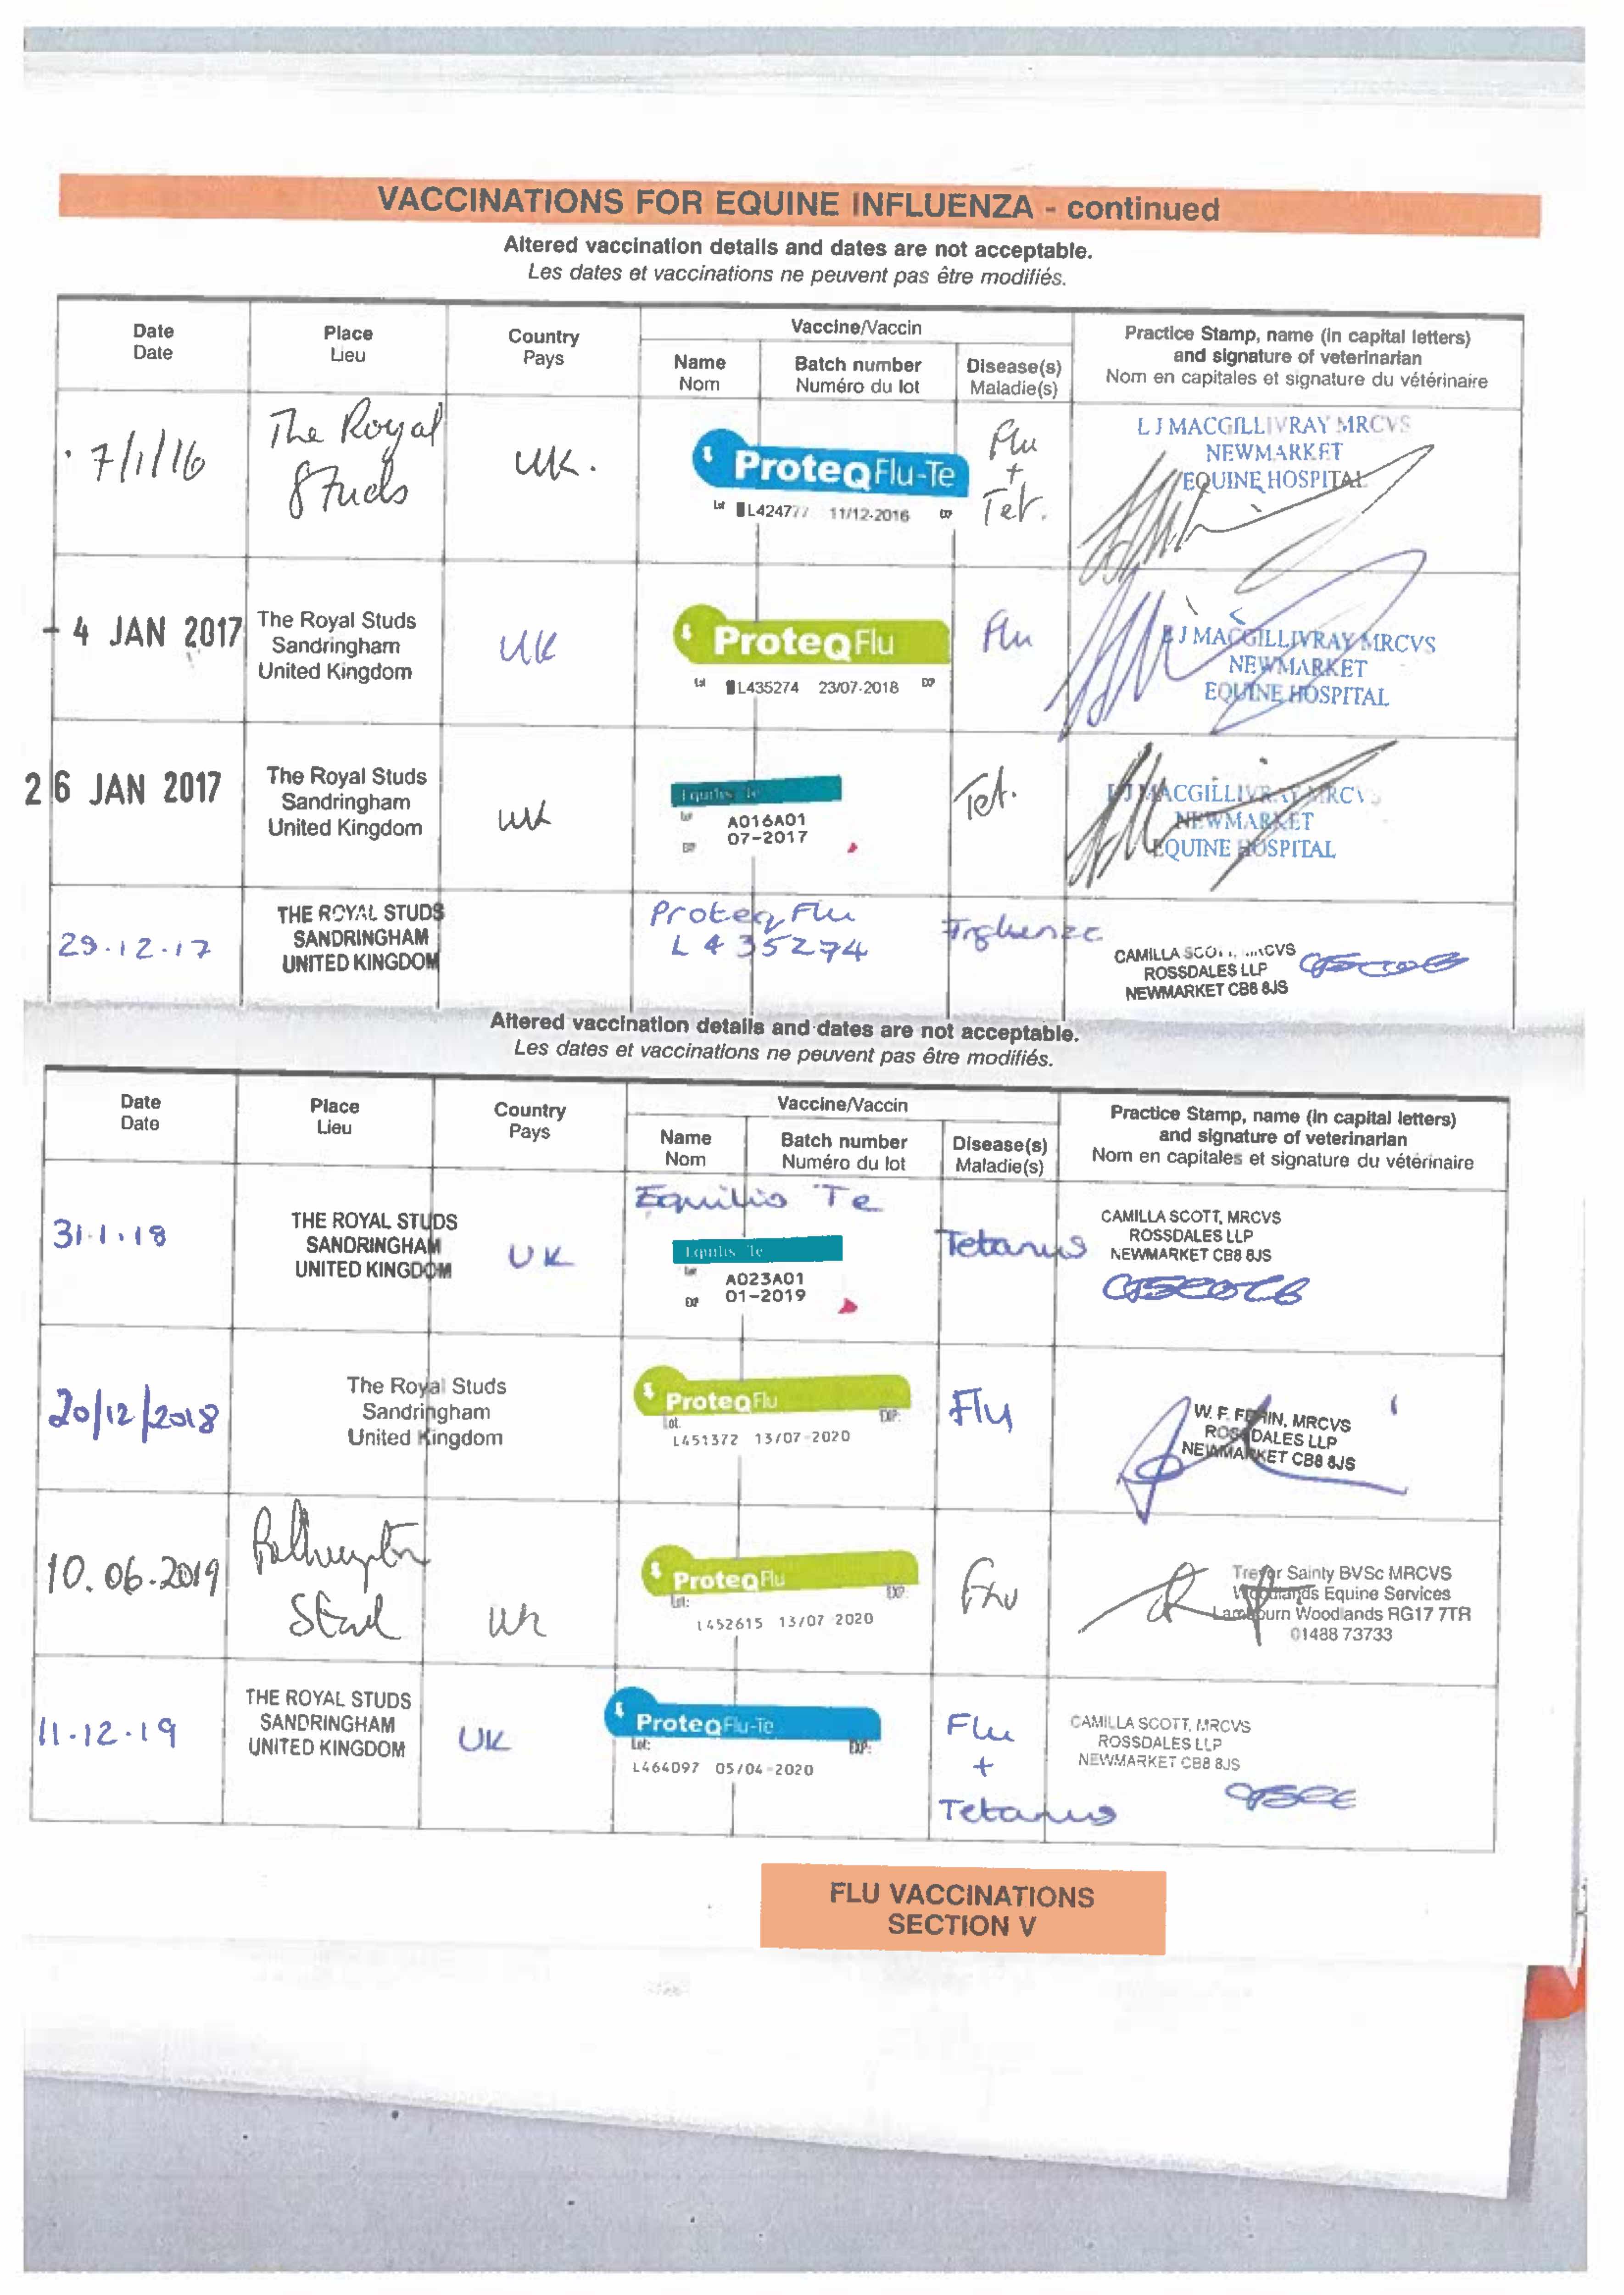 VACCINATIONS FOR EQUINE INFLUENZA - continued
Altered vaccination details and dates are not acceptable.
Les dates et vaccinations ne peuvent pas être modifiés.
Date
Date
Place
Lieu
Country
Pays
Vaccine/Vaccin
Name
Nom
Batch number
Numéro du lot
Disease(s)
Maladie(s)
Practice Stamp, name (in capital letters)
and signature of veterinarian
Nom en capitales et signature du vétérinaire
7/1/16
The Royal
Studs
UK.
ProteqFlu-Te
Lot L424777 11/12-2016 EXP
Flu
+
Tet.
L J MACGILLIVRAY MRCVS
NEWMARKET
EQUINE HOSPITAL
- 4 JAN 2017
The Royal Studs
Sandringham
United Kingdom
UK
ProteqFlu
Lot L435274 23/07-2018 EXP
Flu
L J MACGILLIVRAY MRCVS
NEWMARKET
EQUINE HOSPITAL
26 JAN 2017
The Royal Studs
Sandringham
United Kingdom
UK
Equilis Te
A016A01
07-2017
Tet.
L J MACGILLIVRAY MRCVS
NEWMARKET
EQUINE HOSPITAL
29.12.17
THE ROYAL STUDS
SANDRINGHAM
UNITED KINGDOM
Proteq Flu
L435274
CAMILLA SCOTT, MRCVS
ROSSDALES LLP
NEWMARKET CB8 8JS
Altered vaccination details and dates are not acceptable.
Les dates et vaccinations ne peuvent pas être modifiés.
Date
Date
Place
Lieu
Country
Pays
Vaccine/Vaccin
Name
Nom
Batch number
Numéro du lot
Disease(s)
Maladie(s)
Practice Stamp, name (in capital letters)
and signature of veterinarian
Nom en capitales et signature du vétérinaire
31.1.18
THE ROYAL STUDS
SANDRINGHAM
UNITED KINGDOM
UK
Equilis Te
Equilis Te
Lot A023A01
EXP 01-2019
Tetanus
CAMILLA SCOTT, MRCVS
ROSSDALES LLP
NEWMARKET CB8 8JS
20/12/2018
The Royal Studs
Sandringham
United Kingdom
ProteqFlu
Lot: EXP:
L451372 13/07-2020
Flu
W. F. MRCVS
ROSSDALES LLP
NEWMARKET CB8 8JS
10.06.2019
Stud
UK
ProteqFlu
Lot: EXP:
L452615 13/07 2020
Flu
Trevor Sainty BVSc MRCVS
Woodlands Equine Services
Lambourn Woodlands RG17 7TR
01488 73733
11.12.19
THE ROYAL STUDS
SANDRINGHAM
UNITED KINGDOM
UK
ProteqFlu-Te
Lot: EXP:
L464097 05/04-2020
Flu
+
Tetanus
CAMILLA SCOTT, MRCVS
ROSSDALES LLP
NEWMARKET CB8 8JS
FLU VACCINATIONS
SECTION V